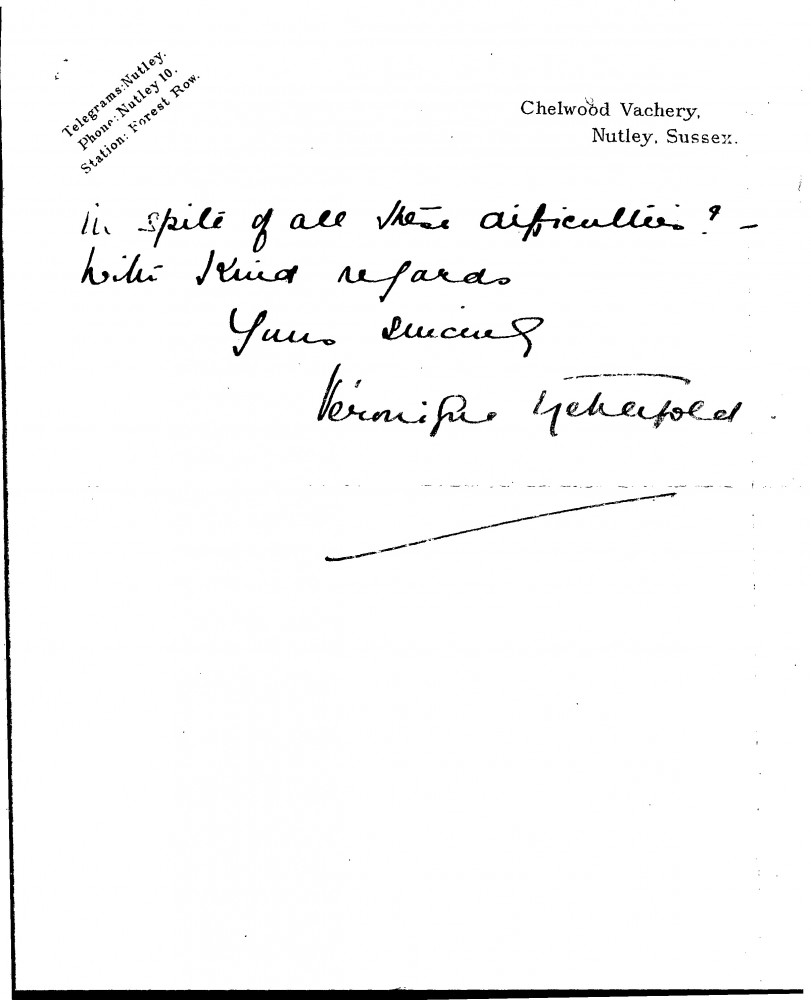 Telegrams: Nutley.
Phone: Nutley 10.
Station: Forest Row.
Chelwood Vachery,
Nutley, Sussex.
in spite of all these difficulties? –
With kind regards
Yours sincerely
Véronique